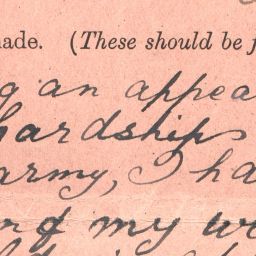 made. (These should be f
g an appea
hardships
army, I ha
and my w